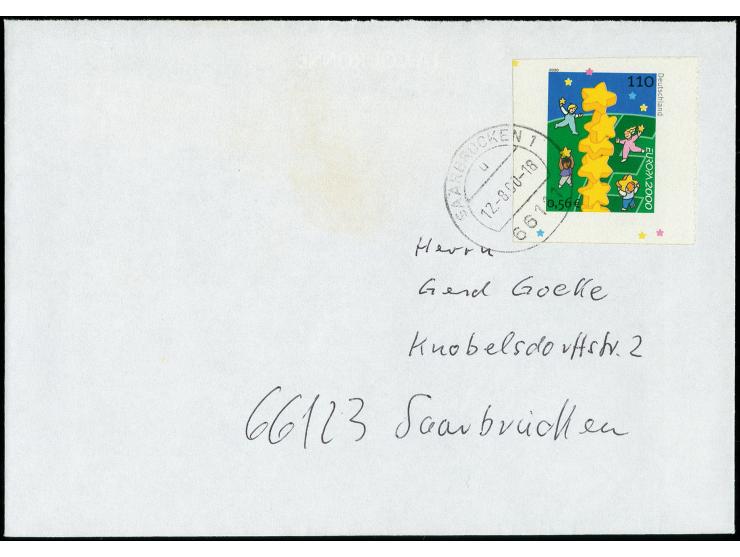 2000
110
Deutschland
EUROPA 2000
0,56 €
SAARBRÜCKEN 1
u
12.-8.00-18
Herrn
Gerd Goelke
Knobelsdorffstr. 2
66123 Saarbrücken